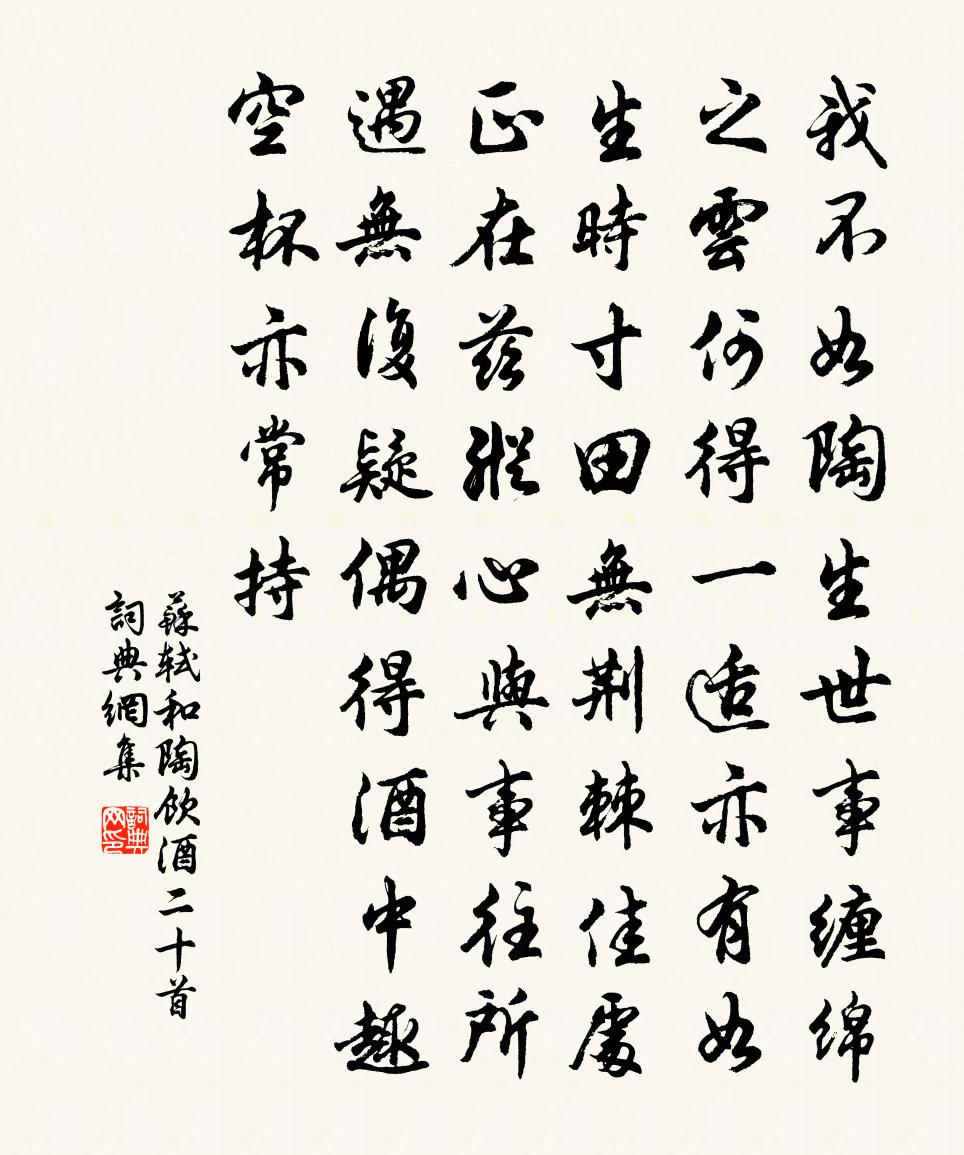 我不如陶生世事纏綿
之雲何得一適亦有如
生時寸田無荆棘佳處
正在兹縱心與事往所
遇無復疑偶得酒中趣
空杯亦常持
蘇軾和陶飲酒二十首
詞典網集
詞典网印